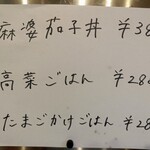 麻婆茄子丼 ¥38
高菜ごはん ¥28
たまごかけごはん ¥28